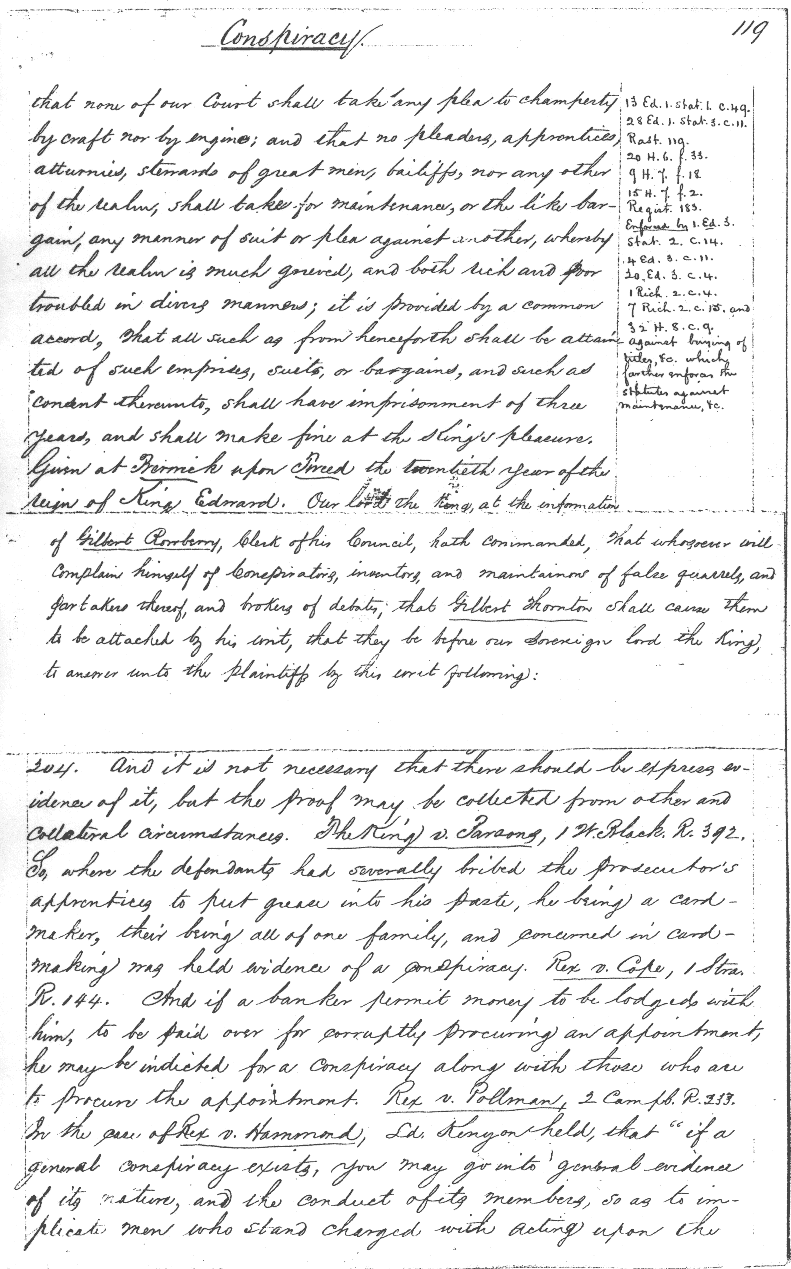 Conspiracy.
119
that none of our Court shall take any plea to champerty
by craft nor by engine; and that no pleaders, apprentices,
atturnies, stewards of great men, bailiffs, nor any other
of the realm, shall take for maintenance, or the like bar-
gain, any manner of suit or plea against another, whereby
all the realm is much grieved, and both rich and poor
troubled in divers manners; it is provided by a common
accord, That all such as from henceforth shall be attain-
ted of such emprises, suits, or bargains, and such as
consent thereunto, shall have imprisonment of three
years, and shall make fine at the King's pleasure.
Given at Berwick upon Tweed the twentieth year of the
reign of King Edward. Our lord the King, at the information
13 Ed. 1. Stat. 1. c. 49.
28 Ed. 1. Stat. 3. c. 11.
Rast. 119.
20 H. 6. f. 33.
9 H. 7. f. 18
15 H. 7. f. 2.
Regist. 183.
Enforced by 1. Ed. 3.
Stat. 2. c. 14.
4 Ed. 3. c. 11.
20. Ed. 3. c. 4.
1 Rich. 2. c. 4.
7 Rich. 2. c. 15. and
32 H. 8. c. 9.
against buying of
titles, &c. which
farther enforces the
statutes against
maintenance, &c.
of Gilbert Rowberry, Clerk of his Council, hath commanded, That whosoever will
complain himself of Conspirators, inventors, and maintainors of false quarrels, and
partakers thereof, and brokers of debates; that Gilbert Thornton shall cause them
to be attached by his writ, that they be before our Sovereign lord the King,
to answer unto the plaintiffs by this writ following:
204. And it is not necessary that there should be express ev-
idence of it, but the proof may be collected from other and
collateral circumstances. The King v. Parsons, 1 W. Black. R. 392.
So, where the defendants had severally bribed the prosecutor's
apprentices to put grease into his paste, he being a card-
maker, their being all of one family, and concerned in card-
making was held evidence of a conspiracy. Rex v. Cope, 1 Stra.
R. 144. And if a banker permit money to be lodged with
him, to be paid over for corruptly procuring an appointment,
he may be indicted for a conspiracy along with those who are
to procure the appointment. Rex v. Pollman, 2 Campb. R. 233.
In the case of Rex v. Hammond, Ld. Kenyon held, that "if a
general conspiracy exists, you may go into general evidence
of its nature, and the conduct of its members, so as to im-
plicate men who stand charged with acting upon the